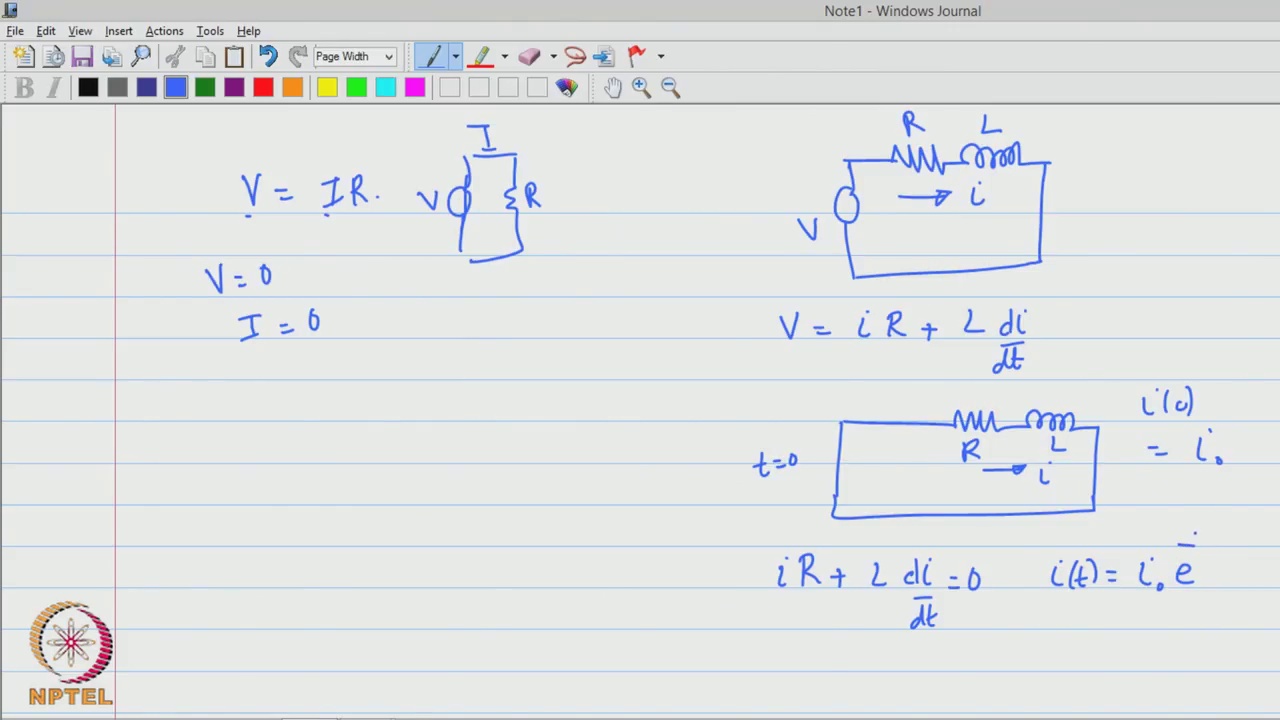 Note1 - Windows Journal
File Edit View Insert Actions Tools Help
Page Width
B I
I
V = IR.
V
R
V = 0
I = 0
R L
i
V
V = i R + L di/dt
t=0
R L
i
i(0)
= i₀
i R + L di/dt = 0
i(t) = i₀ e⁻
NPTEL